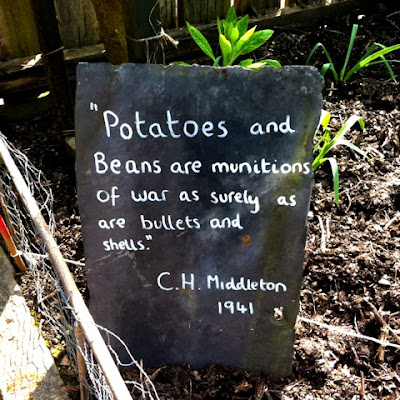 "Potatoes and
Beans are munitions
of war as surely as
are bullets and
shells."
C.H. Middleton
1941